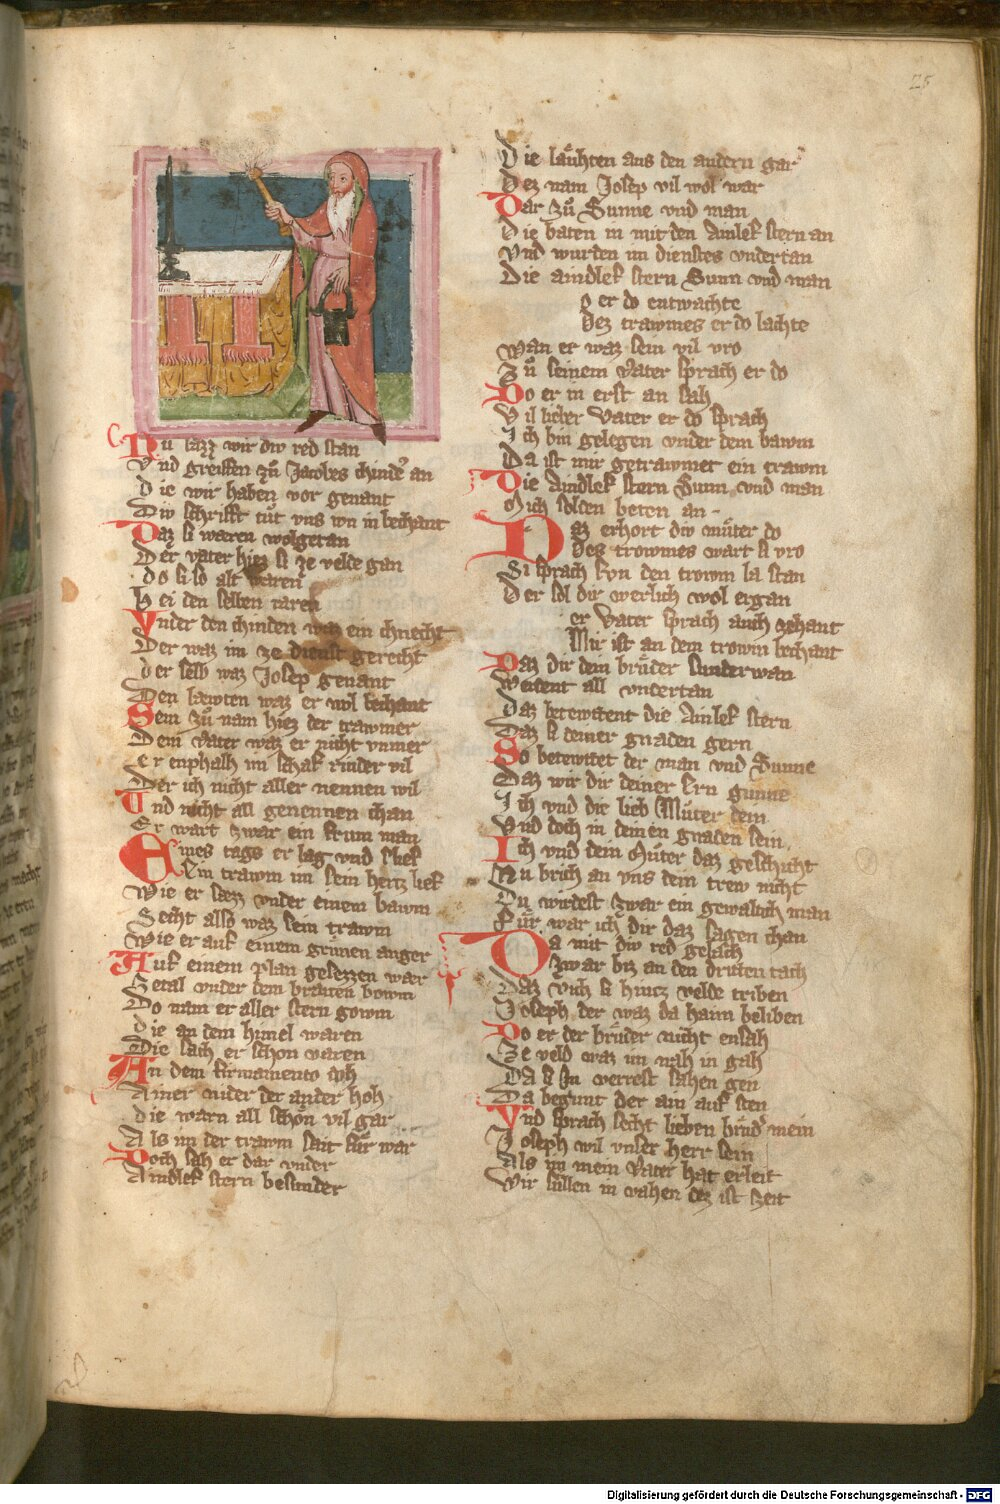 25
Nu lazz wir diw red stan
Vnd greiffen zů Jacobes chinder an
die wir haben vor genant
Diw schrifft tůt vns wn in bechant
Daz si waren wolgetan
Der vater hiez si ze velde gan
do si so alt waren
bei den selben iaren
Vnder den chinden waz ein chnecht
Der waz im ze dienst gerecht
der selb waz Josep genant
Den lawten waz er wol bechant
Sein zů nam hiez der trawmer
Dem vater waz er nicht vnmer
er enphalh im schaf rinder vil
Der ich nicht aller nennen wil
Vnd nicht all genennen chan
Er wart zwar ein frum man
Eines tags er lag vnd slief
Ein trawm im sein hertz lief
Wie er sazz vnder einem bawm
Secht also waz sein trawm
Wie er auf einem grünen anger
Auf einem plan gesezzen war
Zetal vnder dem braiten bowm
Do nam er aller stern gowm
die an dem himel waren
Die sach er schon varen
An dem firmamento hoh
Ainer nider der ander hoh
die warn all schön vil gar
Als im der trawm sait für war
Doch sah er dar vnder
Aindlef stern besunder
Die laůhten aus den andern gar
Dez nam Josep vil wol war
Dar zů Sunne vnd man
Die baten in mit den Ainlef stern an
Vnd wurden im dienstes vndertan
Die aindlef stern Sunn vnd man
o er do entwachte
Dez trawmes er do lachte
wan er waz sein vil vro
Zů seinem vater sprach er do
Do er in erst an sah
Vil lieber Vater er do sprach
Ich bin gelegen vnder dem bawm
Da ist mir getrawmet ein trawm
Die Aindlef stern Sunn vnd man
Mich solden beten an
Daz erhort diw můter do
Dez trowmes wart si vro
Si sprach Syn den trowm la stan
Der sol dir werlich wol ergan
er Vater sprach auch zehant
Mir ist an dem trowm bechant
Daz dir dein brůder sunder wan
Werdent all vndertan
Daz betewtent die Ainlef stern
Daz si deiner gnaden gern
So betewtet der man vnd Sunne
Daz wir dir deiner Ern gunne
Ich vnd die lieb Můter dein
Vnd doch in deinen gnaden sein
Ich vnd dein Můter daz geschicht
Nu brich an vns dein trew nicht
Du wirdest zwar ein gewaltich man
Für war ich dir daz sagen chan
Da mit diw red gelach
Zwar biz an den dritten tach
Daz vich si hincz velde triben
Joseph der waz da haim beliben
Do er der brůder nicht ensah
Ze veld waz im nah in gah
Da si In verrest sahen gen
Da begunt der ain auf sten
Vnd sprach secht lieben brůder mein
Joseph wil vnser herr sein
Als im mein Vater hat erleit
Wir sullen in vahen dez ist zeit
Digitalisierung gefördert durch die Deutsche Forschungsgemeinschaft - DFG